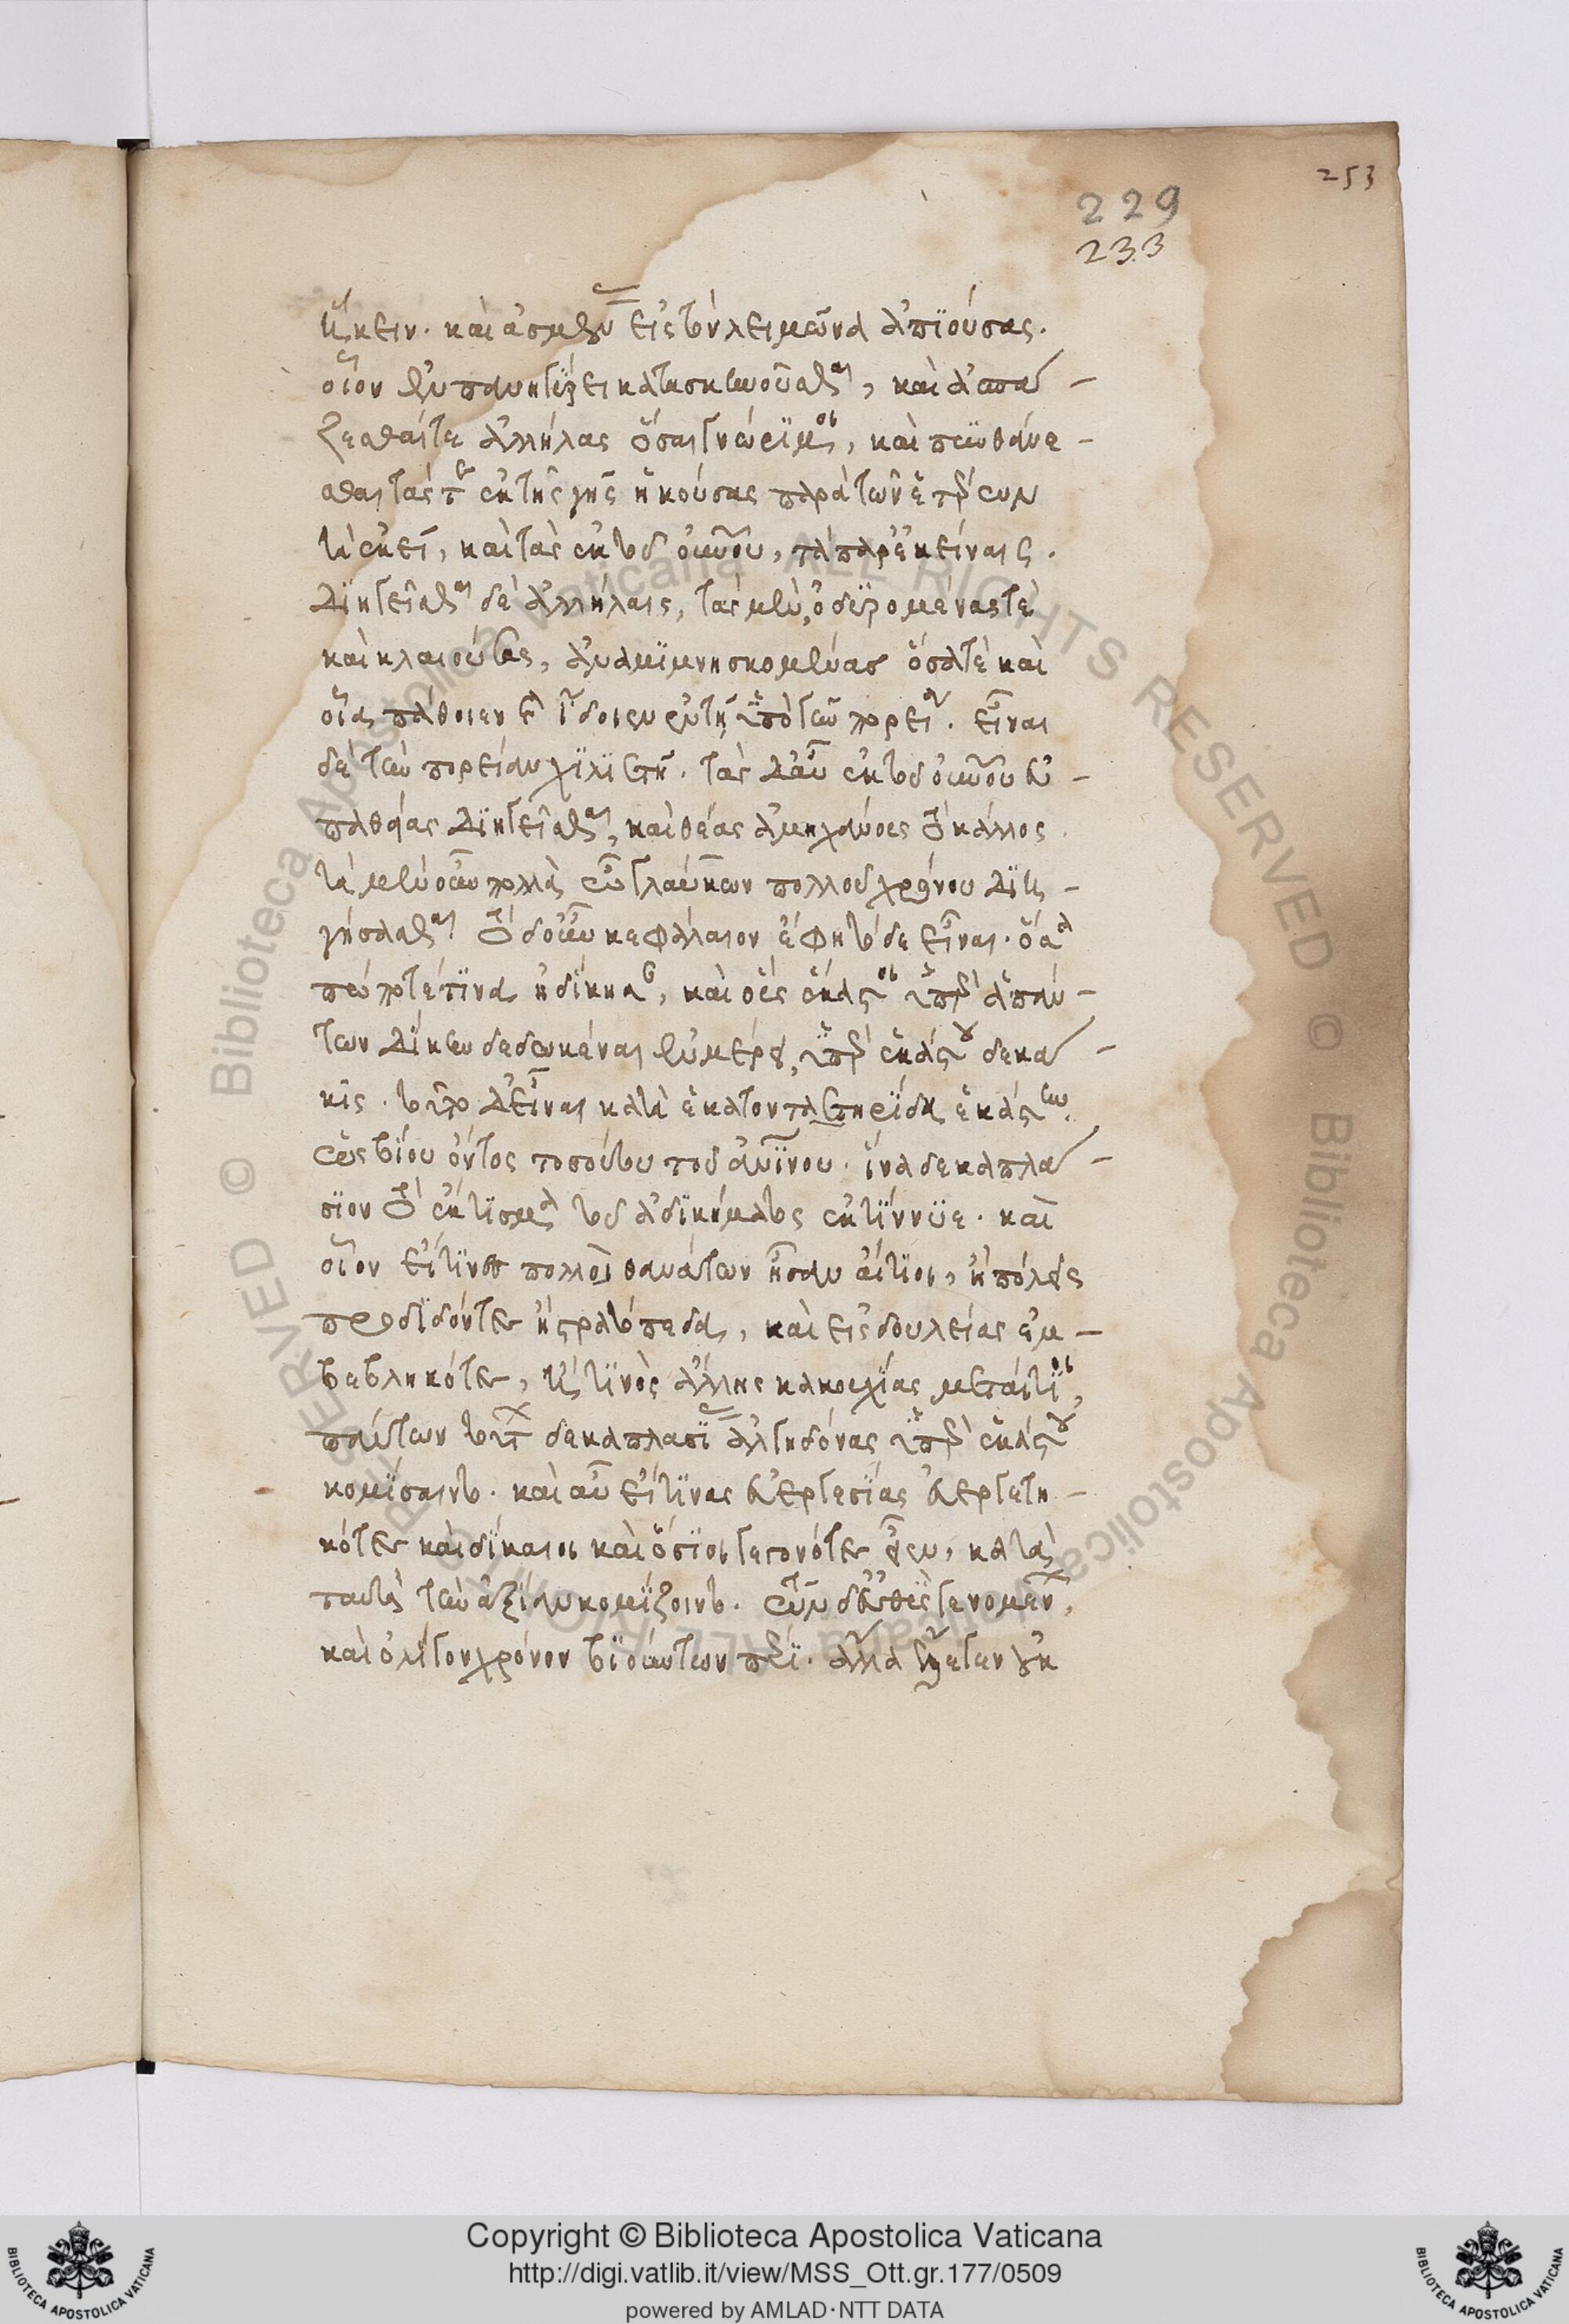 253
229
233
ἥκειν· καὶ ἀσμένως εἰς τὸν λειμῶνα ἀπϊούσας·
οἷον ἐν πανηγύρει κατασκηνοῦσθαι, καὶ ἀσπά-
ζεσθαί τε ἀλλήλας ὅσαι γνώριμοι, καὶ πυνθάνε-
σθαι τάς τε ἐκ τῆς γῆς ἡκούσας παρὰ τῶν ἑτέρων
τὰ ἐκεῖ, καὶ τὰς ἐκ τοῦ οὐρανοῦ, τὰ παρ' ἐκείναις.
διηγεῖσθαι δὲ ἀλλήλαις, τὰς μὲν, ὀδυρομένας τὲ
καὶ κλαιούσας, ἀναμιμνησκομένας ὅσα τὲ καὶ
οἷα πάθοιεν καὶ ἴδοιεν ἐν τῇ ὑπὸ γῆν πορείᾳ. εἶναι
δὲ τὴν πορείαν χιλιετῆ. τὰς δ' αὖ ἐκ τοῦ οὐρανοῦ εὐ-
παθείας διηγεῖσθαι, καὶ θέας ἀμηχάνους τὸ κάλλος.
τὰ μὲν οὖν πολλὰ ὦ γλαύκων πολλοῦ χρόνου διη-
γήσασθαι. τὸ δ' οὖν κεφάλαιον ἔφη τόδε εἶναι. ὅσα
πώποτέ τινα ἠδίκησαν, καὶ οὓς ἕκαστοι ὑπὲρ ἁπάν-
των δίκην δεδωκέναι ἐν μέρει, ὑπὲρ ἑκάστου δεκά-
κις. τοῦτο δ' εἶναι κατὰ ἑκατονταετηρίδα ἑκάστην.
ὡς βίου ὄντος τοσούτου τοῦ ἀνθρωπίνου. ἵνα δεκαπλά-
σιον τὸ ἔκτισμα τοῦ ἀδικήματος ἐκτίννυε. καὶ
οἷον εἴ τινες πολλοῖ θανάτων ἦσαν αἴτιοι, ἢ πόλεις
προδιδόντες ἢ στρατόπεδα, καὶ εἰς δουλείας ἐμ-
βεβληκότες, ἤ τινὸς ἄλλης κακουχίας μεταίτιοι,
πάντων τούτων δεκαπλασίας ἀλγηδόνας ὑπὲρ ἑκάστου
κομίσαιντο. καὶ αὖ εἴ τινας εὐεργεσίας εὐεργετη-
κότες καὶ δίκαιοι καὶ ὅσιοι γεγονότες εἶεν, κατὰ
ταυτὰ τὴν ἀξίαν κομίζοιντο. τῶν δ' εὐθὺς γενομένων,
καὶ ὀλίγον χρόνον βιούντων πέρι. ἄλλα ἔλεγεν οὐκ
Copyright © Biblioteca Apostolica Vaticana
http://digi.vatlib.it/view/MSS_Ott.gr.177/0509
powered by AMLAD·NTT DATA